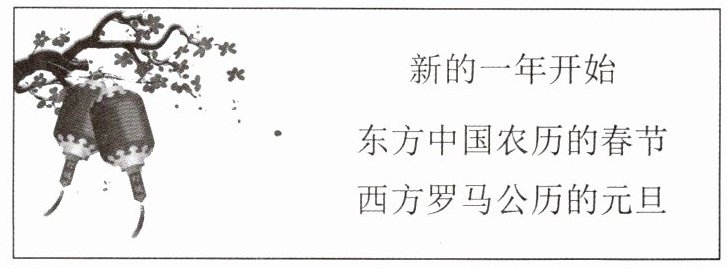 新的一年开始
东方中国农历的春节
西方罗马公历的元旦